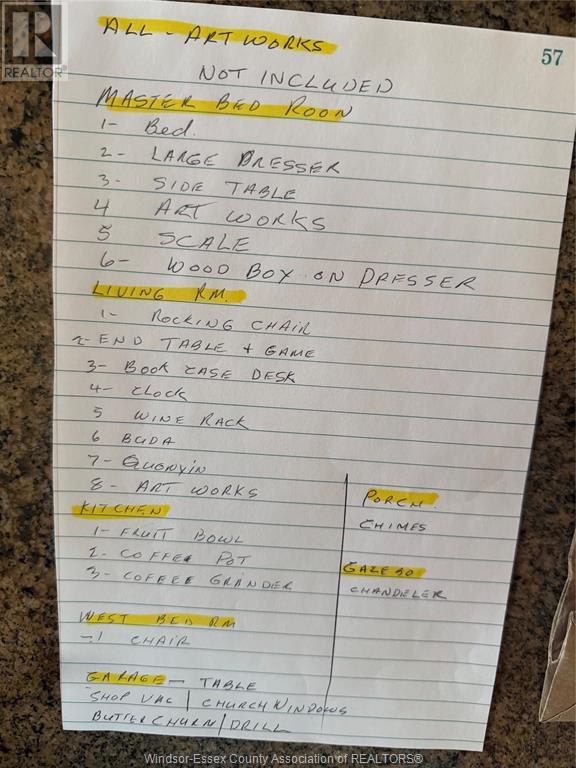 REALTOR®
57
ALL - ART WORKS
NOT INCLUDED
MASTER BED ROON
1- Bed.
2- LARGE DRESSER
3- SIDE TABLE
4 ART WORKS
5 SCALE
6- WOOD BOX ON DRESSER
LIVING RM.
1- ROCKING CHAIR
2- END TABLE + GAME
3- BOOK CASE DESK
4- CLOCK
5 WINE RACK
6 BUDA
7- QUONYIN
8- ART WORKS
KITCHEN
1- FRUIT BOWL
2- COFFEE POT
3- COFFEE GRANDER
WEST BED RM
-1 CHAIR
GARAGE - TABLE
SHOP VAC | CHURCH WINDOWS
BUTTER CHURN / DRILL
PORCH.
CHIMES
GAZEBO
CHANDELER
Windsor-Essex County Association of REALTORS®